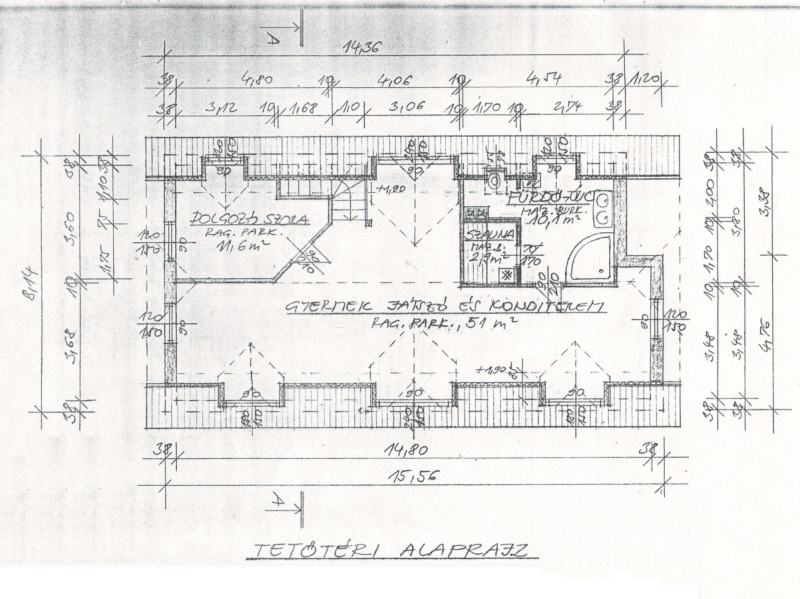 A
14,36
38 4,80 10 4,06 10 4,54 38 1,20
38 3,12 10 1,68 1,0 3,06 10 1,70 10 2,74 38
120
150
90
240
150
90
120
150
90
+1,90
DOLGOZÓ SZOBA
RAG. PARK.
11,6 m²
FÜRDŐ+WC
MÁZ. BURK.
10,1 m²
SZAUNA
2,9 m²
90
210
70
170
90
210
120
150
90
120
150
90
GYERMEK JÁTSZÓ ÉS KONDITEREM
RAG. PARK., 51 m²
90
120
150
+1,90
90
180
150
90
240
150
90
180
150
8,14
38
3,60
10
3,68
38
38
1,10
75
1,75
38
2,00
10
1,70
10
3,48
38
38
3,80
10
3,48
38
3,38
4,76
38 14,80 38
15,56
A
TETŐTÉRI ALAPRAJZ